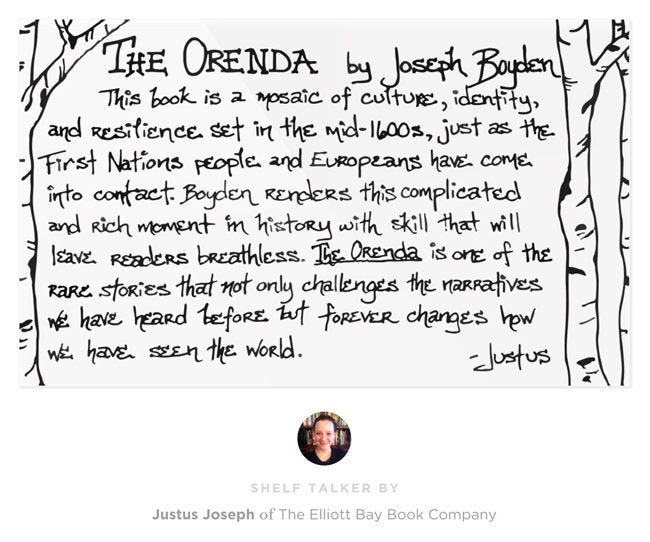 THE ORENDA by Joseph Boyden
This book is a mosaic of culture, identity,
and resilience set in the mid-1600s, just as the
First Nations people and Europeans have come
into contact. Boyden renders this complicated
and rich moment in history with skill that will
leave readers breathless. The Orenda is one of the
rare stories that not only challenges the narratives
we have heard before but forever changes how
we have seen the world.
-Justus
SHELF TALKER BY
Justus Joseph of The Elliott Bay Book Company